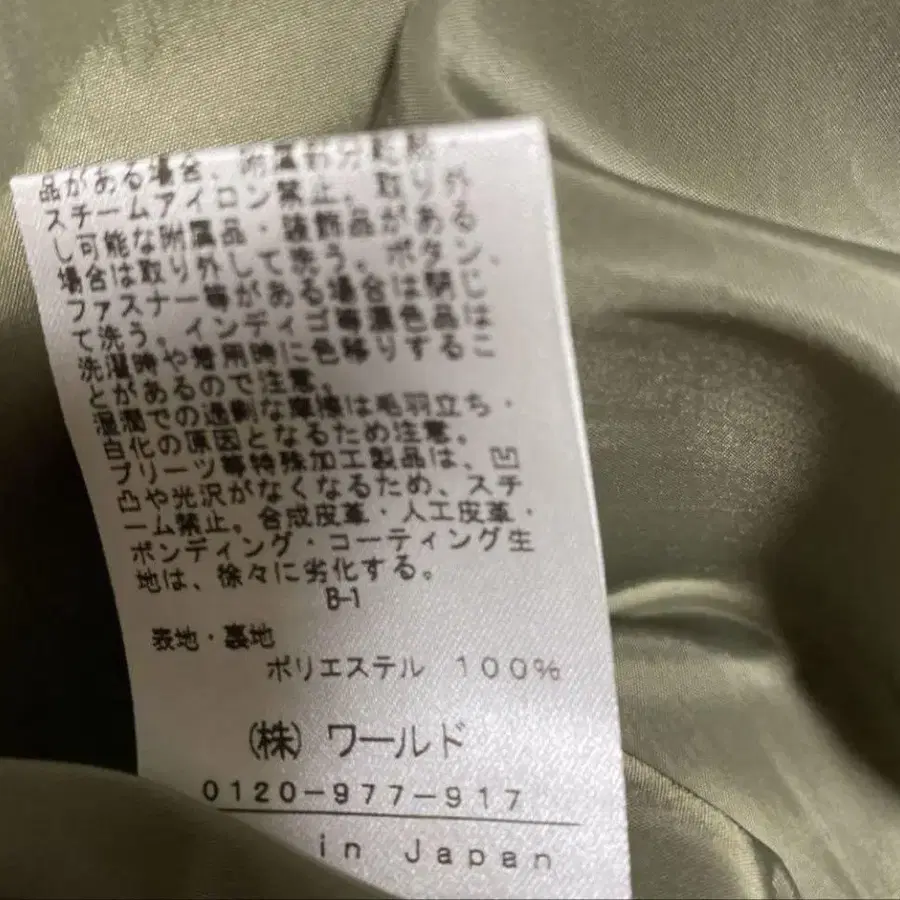 品がある場合、附属部分
スチームアイロン禁止。取り外
し可能な附属品・装飾品がある
場合は取り外して洗う。ボタン、
ファスナー等がある場合は閉じ
て洗う。インディゴ等濃色品は
洗濯時や着用時に色移りするこ
とがあるので注意。
湿潤での過剰な摩擦は毛羽立ち・
白化の原因となるため注意。
プリーツ等特殊加工製品は、凹
凸や光沢がなくなるため、スチ
ーム禁止。合成皮革・人工皮革・
ボンディング・コーティング生
地は、徐々に劣化する。
B-1
表地・裏地
ポリエステル 100%
(株)ワールド
0120-977-917
in Japan